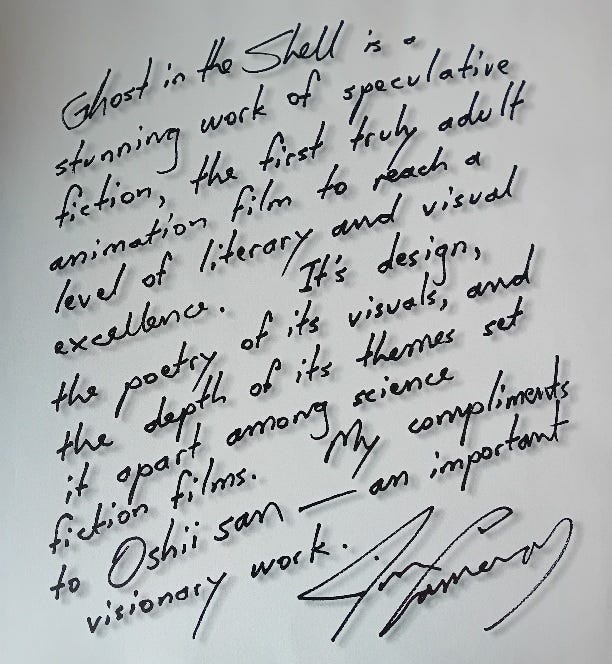 Ghost in the Shell is a
stunning work of speculative
fiction, the first truly adult
animation film to reach a
level of literary and visual
excellence. It's design,
the poetry of its visuals, and
the depth of its themes set
it apart among science
fiction films. My compliments
to Oshii san — an important
visionary work.
Jim Cameron